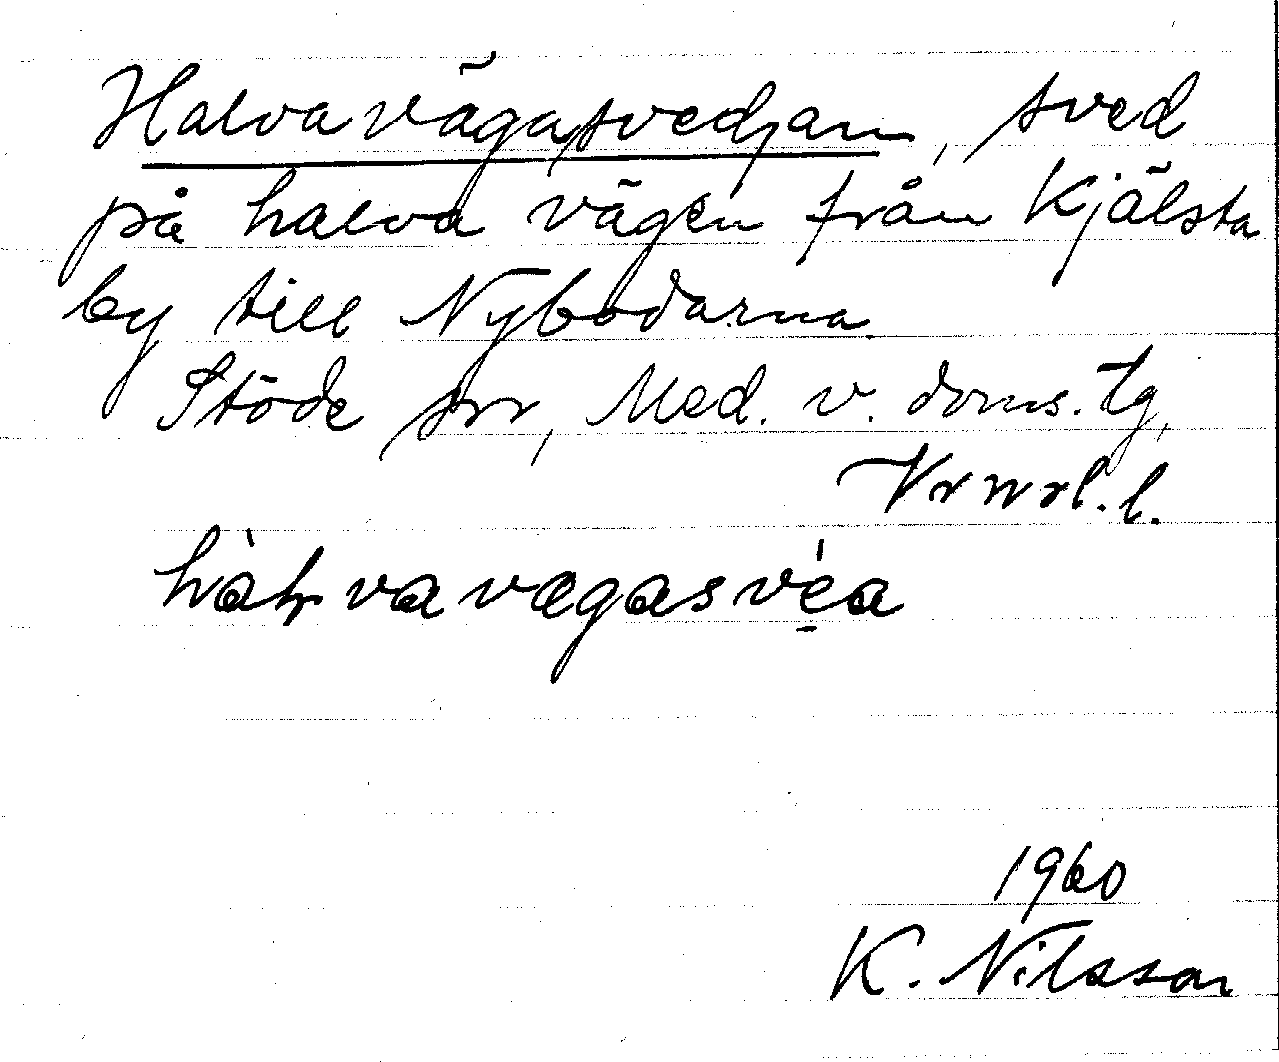 Halvavägasvedjan, sved
på halva vägen från Kjälsta
by till Nybodarna.
Stöde sn, Med. v. doms. tg,
Vrnrl. l.
1960
K. Nilsson